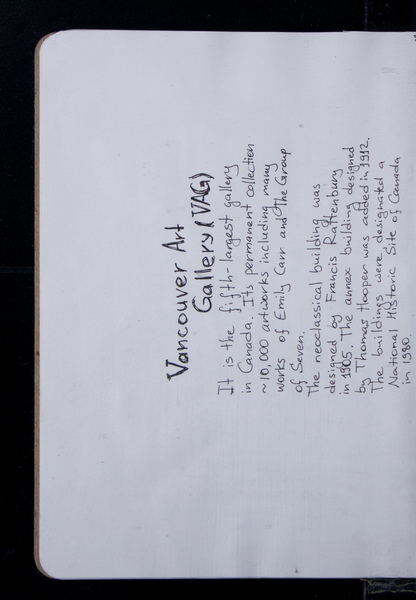 Vancouver Art
Gallery (VAG)
It is the fifth-largest gallery
in Canada. Its permanent collection
~10,000 artworks including many
works of Emily Carr and The Group
of Seven.
The neoclassical building was
designed by Francis Rattenbury
in 1905. The annex building designed
by Thomas Hooper was added in 1912.
The buildings were designated a
National Historic Site of Canada
in 1980.